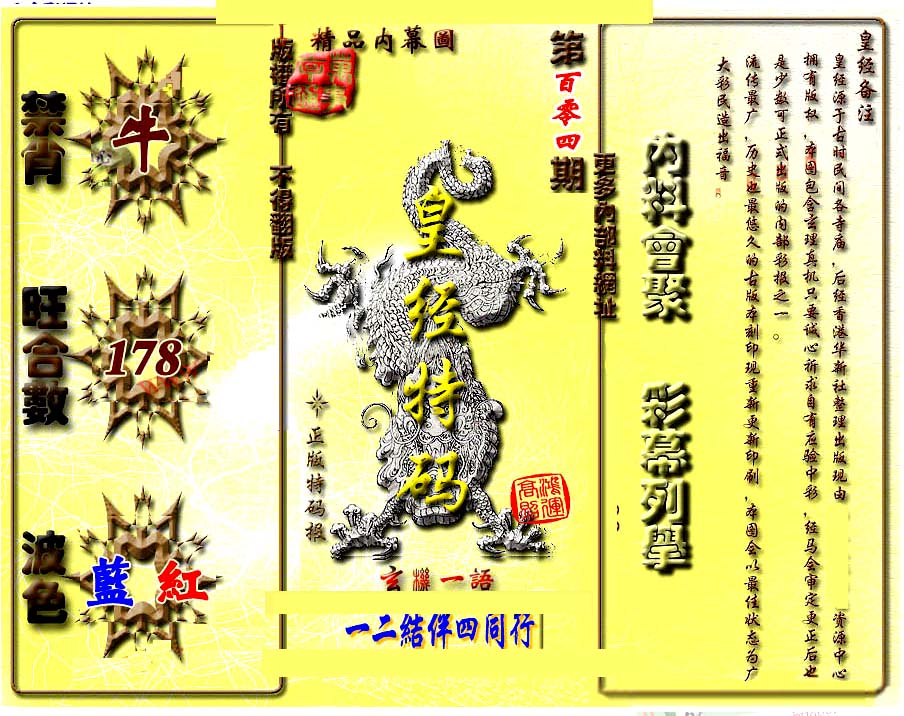 精品內幕圖
版權所有 不得翻版
第百零四期
更多內部料網址
禁肖
牛
旺合數
178
波色
藍 紅
皇经特码
正版特码报
鴻運高照
玄機一語
一二結伴四同行
內料會聚 彩幕列舉
皇经备注
皇经源于古时民间各寺庙,后经香港华新社整理出版现由 资源中心
拥有版权,本图包含玄理真机只要诚心祈求自有应验中彩,经马会审定更正后也
是少数可正式出版的内部彩报之一。
流传最广,历史也最悠久的古版本刻印现重新更新印刷,本图会以最佳状态为广
大彩民造出福音